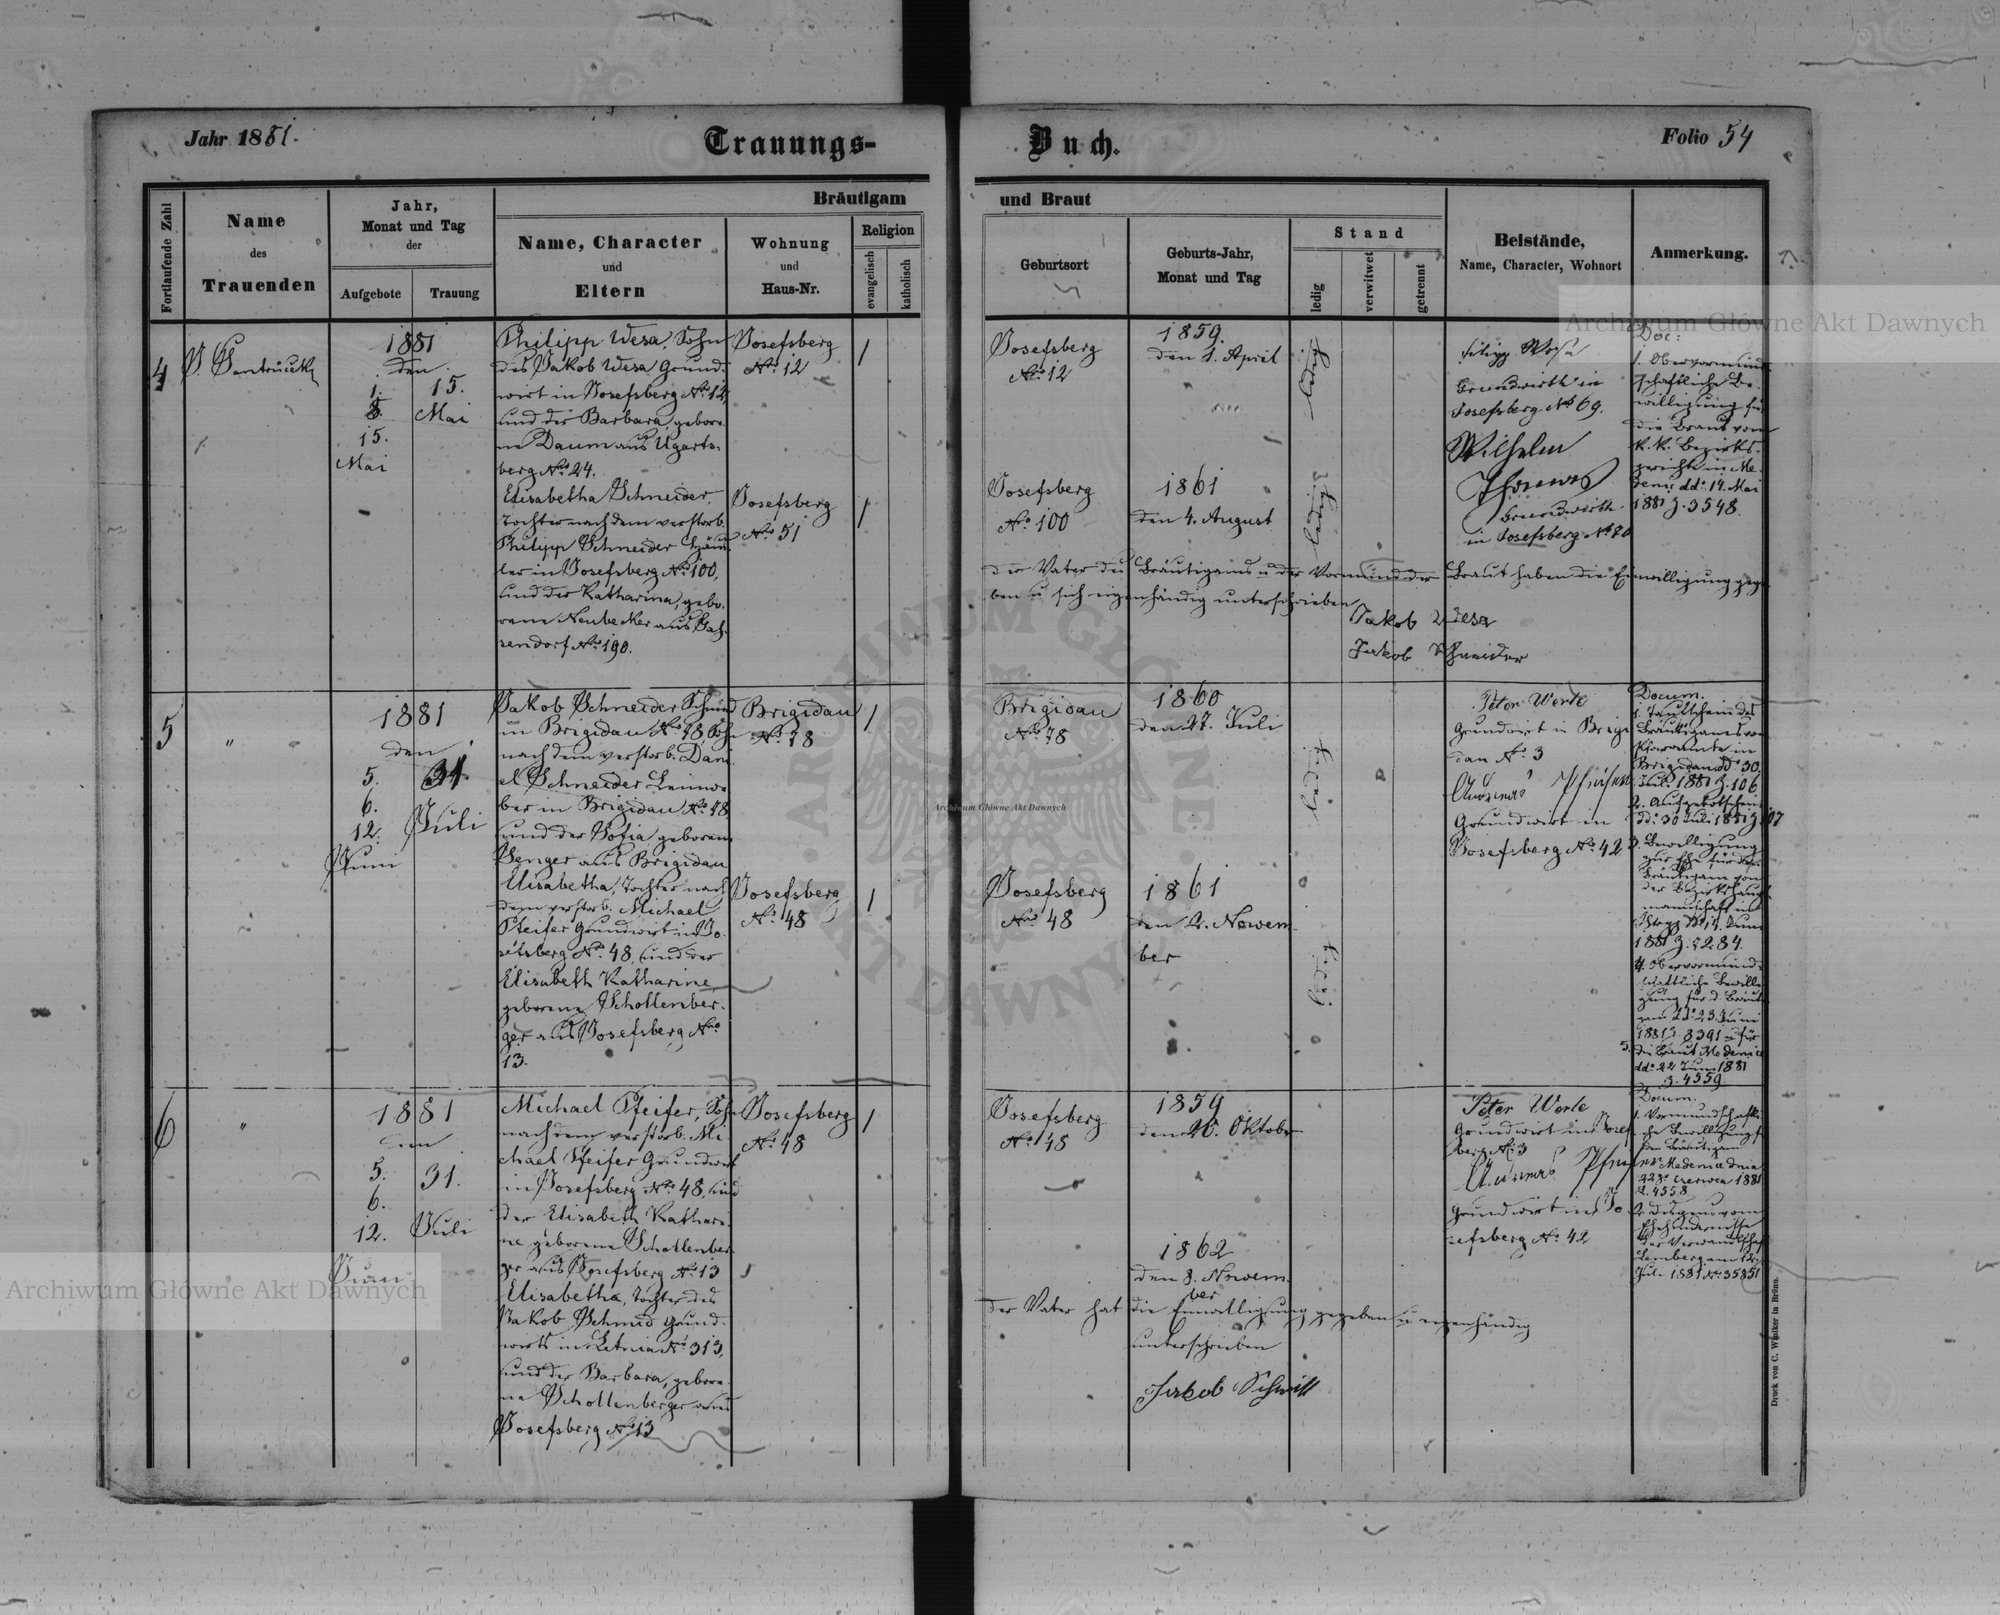 Jahr 1881.
Trauungs-
Buch.
Folio 54
Fortlaufende Zahl
Name
des
Trauenden
Jahr,
Monat und Tag
der
Aufgebote
Trauung
Bräutigam
und Braut
Name, Character
und
Eltern
Wohnung
und
Haus-Nr.
Religion
evangelisch
katholisch
Geburtsort
Geburts-Jahr,
Monat und Tag
Stand
ledig
verwitwet
getrennt
Beistände,
Name, Character, Wohnort
Anmerkung.
4
1881
den
1.
8.
15.
Mai
15.
Mai
Philipp Wesa, Sohn
des Jakob Wesa Grund-
wirt in Josefsberg No 12,
und der Barbara, gebore-
ne Daum aus Ugarts-
berg No 24.
Josefsberg
No 12
1
Josefsberg
No 12
1859.
den 1. April
ledig
Filipp Wesa
Grundwirth in
Josefsberg No 69.
Wilhelm
Thomas
Grundwirth
in Josefsberg No 80
Doc:
1. Obervormund-
schaftliche Be-
willigung für
die Braut vom
k. k. Bezirks-
gericht in Me-
denic ddo 14. Mai
1881 Z. 3548.
Elisabetha Schneider,
Tochter nach dem verstorb.
Philipp Schneider
in Josefsberg No 100,
und der Katharina, gebo-
rene Neubecker aus
No 190.
Josefsberg
No 51
1
Josefsberg
No 100
1861
den 4. August
ledig
der Vater des Bräutigams u der Vormund der Braut haben die Einwilligung gege-
ben u sich eigenhändig unterschrieben
Jakob Wesa
Jakob Schneider
5
"
1881
den
5.
6.
12.
Juni
31.
Juli
Jakob Schneider Schmid
in Brigidau No 78, Sohn
nach dem verstorb. Dani-
el Schneider Leinwe-
ber in Brigidau No 78
und der Sofia geborene
Senger aus Brigidau
Brigidau
No 78
1
Brigidau
No 78
1860
den 27. Juli
ledig
Peter Werle
Grundwirt in Brigi-
dau No 3
Andreas Pfeifer
Grundwirt in
Josefsberg No 42
Docum.
1. Taufschein des
Bräutigams vom
Pfarramte in
Brigidau ddo 30.
Juli 1881 Z. 106
2. Aufgebotschein
ddo 30 Juli 1881 Z. 107
3. Bewilligung
zur Ehe für den
Bräutigam von
der Bezirkshaupt-
mannschaft in
Stryj ddo 14. Juni
1881 Z. 7284.
4. Obervormund-
schaftliche Bewilli-
gung für d. Bräuti-
gam ddo 23. Juni
1881 Z. 8391 u für
5. die Braut Medenice
ddo 22 Juni 1881
Z. 4559
Elisabetha, Tochter nach
dem verstorb. Michael
Pfeifer Grundwirt in Jo-
sefsberg No 48, und der
Elisabeth Katharine,
geborene Schollenber-
ger aus Josefsberg No
13.
Josefsberg
No 48
1
Josefsberg
No 48
1861
den 2. Novem-
ber
ledig
6
"
1881
den
5.
6.
12.
Juni
31.
Juli
Michael Pfeifer, Sohn
nach dem verstorb. Mi-
chael Pfeifer Grundwirt
in Josefsberg No 48, und
der Elisabeth Kathari-
ne geborene Schollenber-
ger aus Josefsberg No 13
Josefsberg
No 48
1
Josefsberg
No 48
1859
den 26. Oktober
Peter Werle
Grundwirt in Josefs-
berg No 3
Andreas Pfeifer
Grundwirt in Jo-
sefsberg No 42
Docum.
1. Vormundschaftli-
che Bewilligung f.
den Bräutigam
Medenice dnia
22go Czerwca 1881
L. 4558
2. Dispens vom
Ehehindernisse
der Verwandtschaft
Lemberg am 12.
Juli 1881 No 35851
Elisabetha, Tochter des
Jakob Schmid Grund-
wirts in Letnia No 313,
und der Barbara, gebore-
ne Schollenberger aus
Josefsberg No 13
1862
den 8. Novem-
ber
der Vater hat die Einwilligung gegeben u eigenhändig
unterschrieben
Jakob Schmitt
Druck von C. Winiker in Brünn.
Archiwum Główne Akt Dawnych
Archiwum Główne Akt Dawnych
Archiwum Główne Akt Dawnych
ARCHIWUM GŁÓWNE AKT DAWNYCH